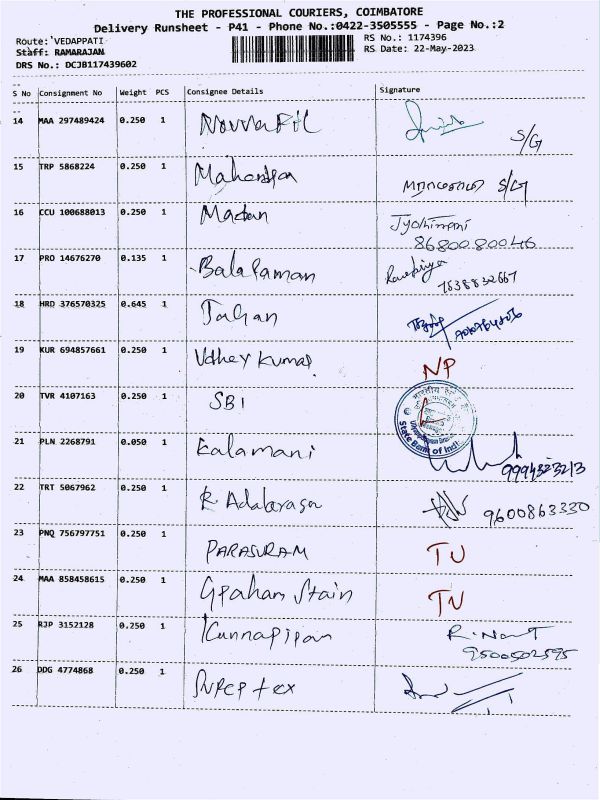 THE PROFESSIONAL COURIERS, COIMBATORE
Delivery Runsheet - P41 - Phone No.:0422-3505555 - Page No.:2
Route: VEDAPPATI RS No.: 1174396
Staff: RAMARAJAN RS Date: 22-May-2023
DRS No.: DCJB117439602
S No Consignment No Weight PCS Consignee Details Signature
14 MAA 297489424 0.250 1 S/G
15 TRP 5868224 0.250 1 S/G
16 CCU 100688013 0.250 1 Madan Jyothimani
8680080046
17 PRO 14676270 0.135 1 Balaraman
7538832667
18 HRD 376570325 0.645 1
19 KUR 694857661 0.250 1 Udhey Kumar NP
20 TVR 4107163 0.250 1 SBI State Bank of India
21 PLN 2268791 0.050 1 Kalamani
22 TRT 5067962 0.250 1 9600863330
23 PNQ 756797751 0.250 1 PARASURAM
24 MAA 858458615 0.250 1 Graham Stain
25 RJP 3152128 0.250 1
9500502595
26 DDG 4774868 0.250 1